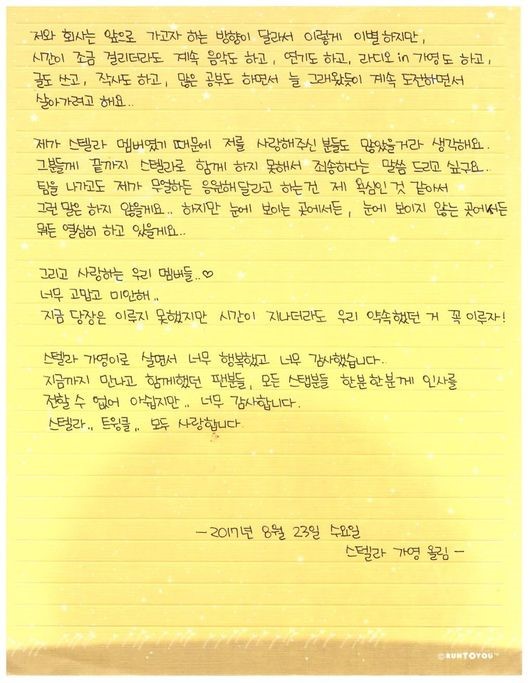 저와 회사는 앞으로 가고자 하는 방향이 달라서 이렇게 이별 하지만,
시간이 조금 걸리더라도 계속 음악도 하고, 연기도 하고, 라디오 in 가영 도 하고,
글도 쓰고, 작사도 하고, 많은 공부도 하면서 늘 그래왔듯이 계속 도전하면서
살아가려고 해요..
제가 스텔라 멤버였기 때문에 저를 사랑해주신 분들도 많았을거라 생각해요..
그분들께 끝까지 스텔라로 함께 하지 못해서 죄송하다는 말씀 드리고 싶구요..
팀을 나가고도 제가 무얼하든 응원해달라고 하는건 제 욕심인것 같아서
그런 말은 하지 않을게요.. 하지만 눈에 보이는 곳에서든, 눈에 보이지 않는 곳에서든
뭐든 열심히 하고 있을게요..
그리고 사랑하는 우리 멤버들..♡
너무 고맙고 미안해..
지금 당장은 이루지 못했지만 시간이 지나더라도 우리 약속했던 거 꼭 이루자!
스텔라 가영이로 살면서 너무 행복했고 너무 감사했습니다..
지금까지 만나고 함께했던 팬분들, 모든 스탭분들 한분한분께 인사를
전할 수 없어 아쉽지만.. 너무 감사합니다.
스텔라.. 트윙클.. 모두 사랑합니다.
-2017년 8월 23일 수요일
스텔라 가영 올림-
©RUNTOYOU™